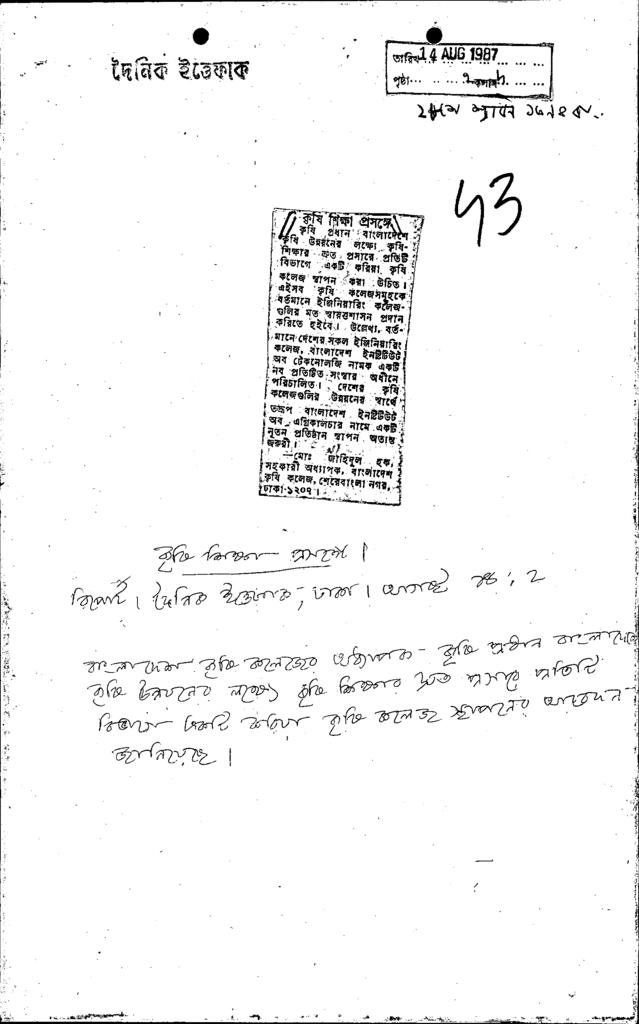 দৈনিক ইত্তেফাক
তারিখ 14 AUG 1987 ... ... ...
পৃষ্ঠা... ... ...
43
কৃষি শিক্ষা প্রসঙ্গে
কৃষি প্রধান বাংলাদেশে
কৃষি উন্নয়নের লক্ষ্যে কৃষি-
শিক্ষার দ্রুত প্রসারে প্রতিটি
বিভাগে একটি করিয়া কৃষি
কলেজ স্থাপন করা উচিত।
এইসব কৃষি কলেজসমূহকে
বর্তমানে ইঞ্জিনিয়ারিং কলেজ-
গুলির মত স্বায়ত্তশাসন প্রদান
করিতে হইবে। উল্লেখ্য, বর্ত-
মানে দেশের সকল ইঞ্জিনিয়ারিং
কলেজ, বাংলাদেশ ইনষ্টিটিউট
অব টেকনোলজি নামক একটি
নব প্রতিষ্ঠিত সংস্থার অধীনে
পরিচালিত। দেশের কৃষি
কলেজগুলির উন্নয়নের স্বার্থে
তদ্রূপ বাংলাদেশ ইনষ্টিটিউট
অব এগ্রিকালচার নামে একটি
নূতন প্রতিষ্ঠান স্থাপন অত্যন্ত
জরুরী।
—মোঃ জাহিদুল হক,
সহকারী অধ্যাপক, বাংলাদেশ
কৃষি কলেজ, শেরেবাংলা নগর,
ঢাকা-১২০৭।
কৃষি শিক্ষা প্রসঙ্গে।
রিপোর্ট। দৈনিক ইত্তেফাক, ঢাকা। আগস্ট ১৪; ২
বাংলাদেশ কৃষি কলেজের অধ্যাপক - কৃষি প্রধান বাংলাদেশে
কৃষি উন্নয়নের লক্ষ্যে কৃষি শিক্ষার দ্রুত প্রসারে প্রতিটি
বিভাগে একটি করিয়া কৃষি কলেজ স্থাপনের আবেদন
জানিয়েছে।